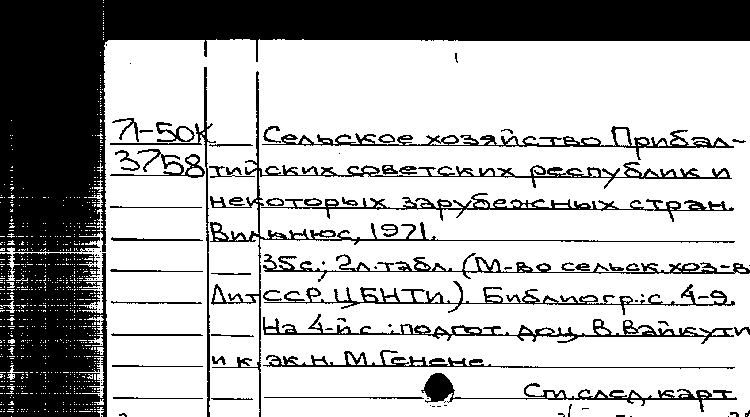 71-50К Сельское хозяйство Прибал-
3758 тийских советских республик и
некоторых зарубежных стран.
Вильнюс, 1971.
35с.; 2л.табл. (М-во сельск.хоз-в
ЛитССР. ЦБНТИ.). Библиогр.:с. 4-9.
На 4-й с.:подгот. доц. В.Вайкути
и к.эк.н. М.Генене.
См.след.карт